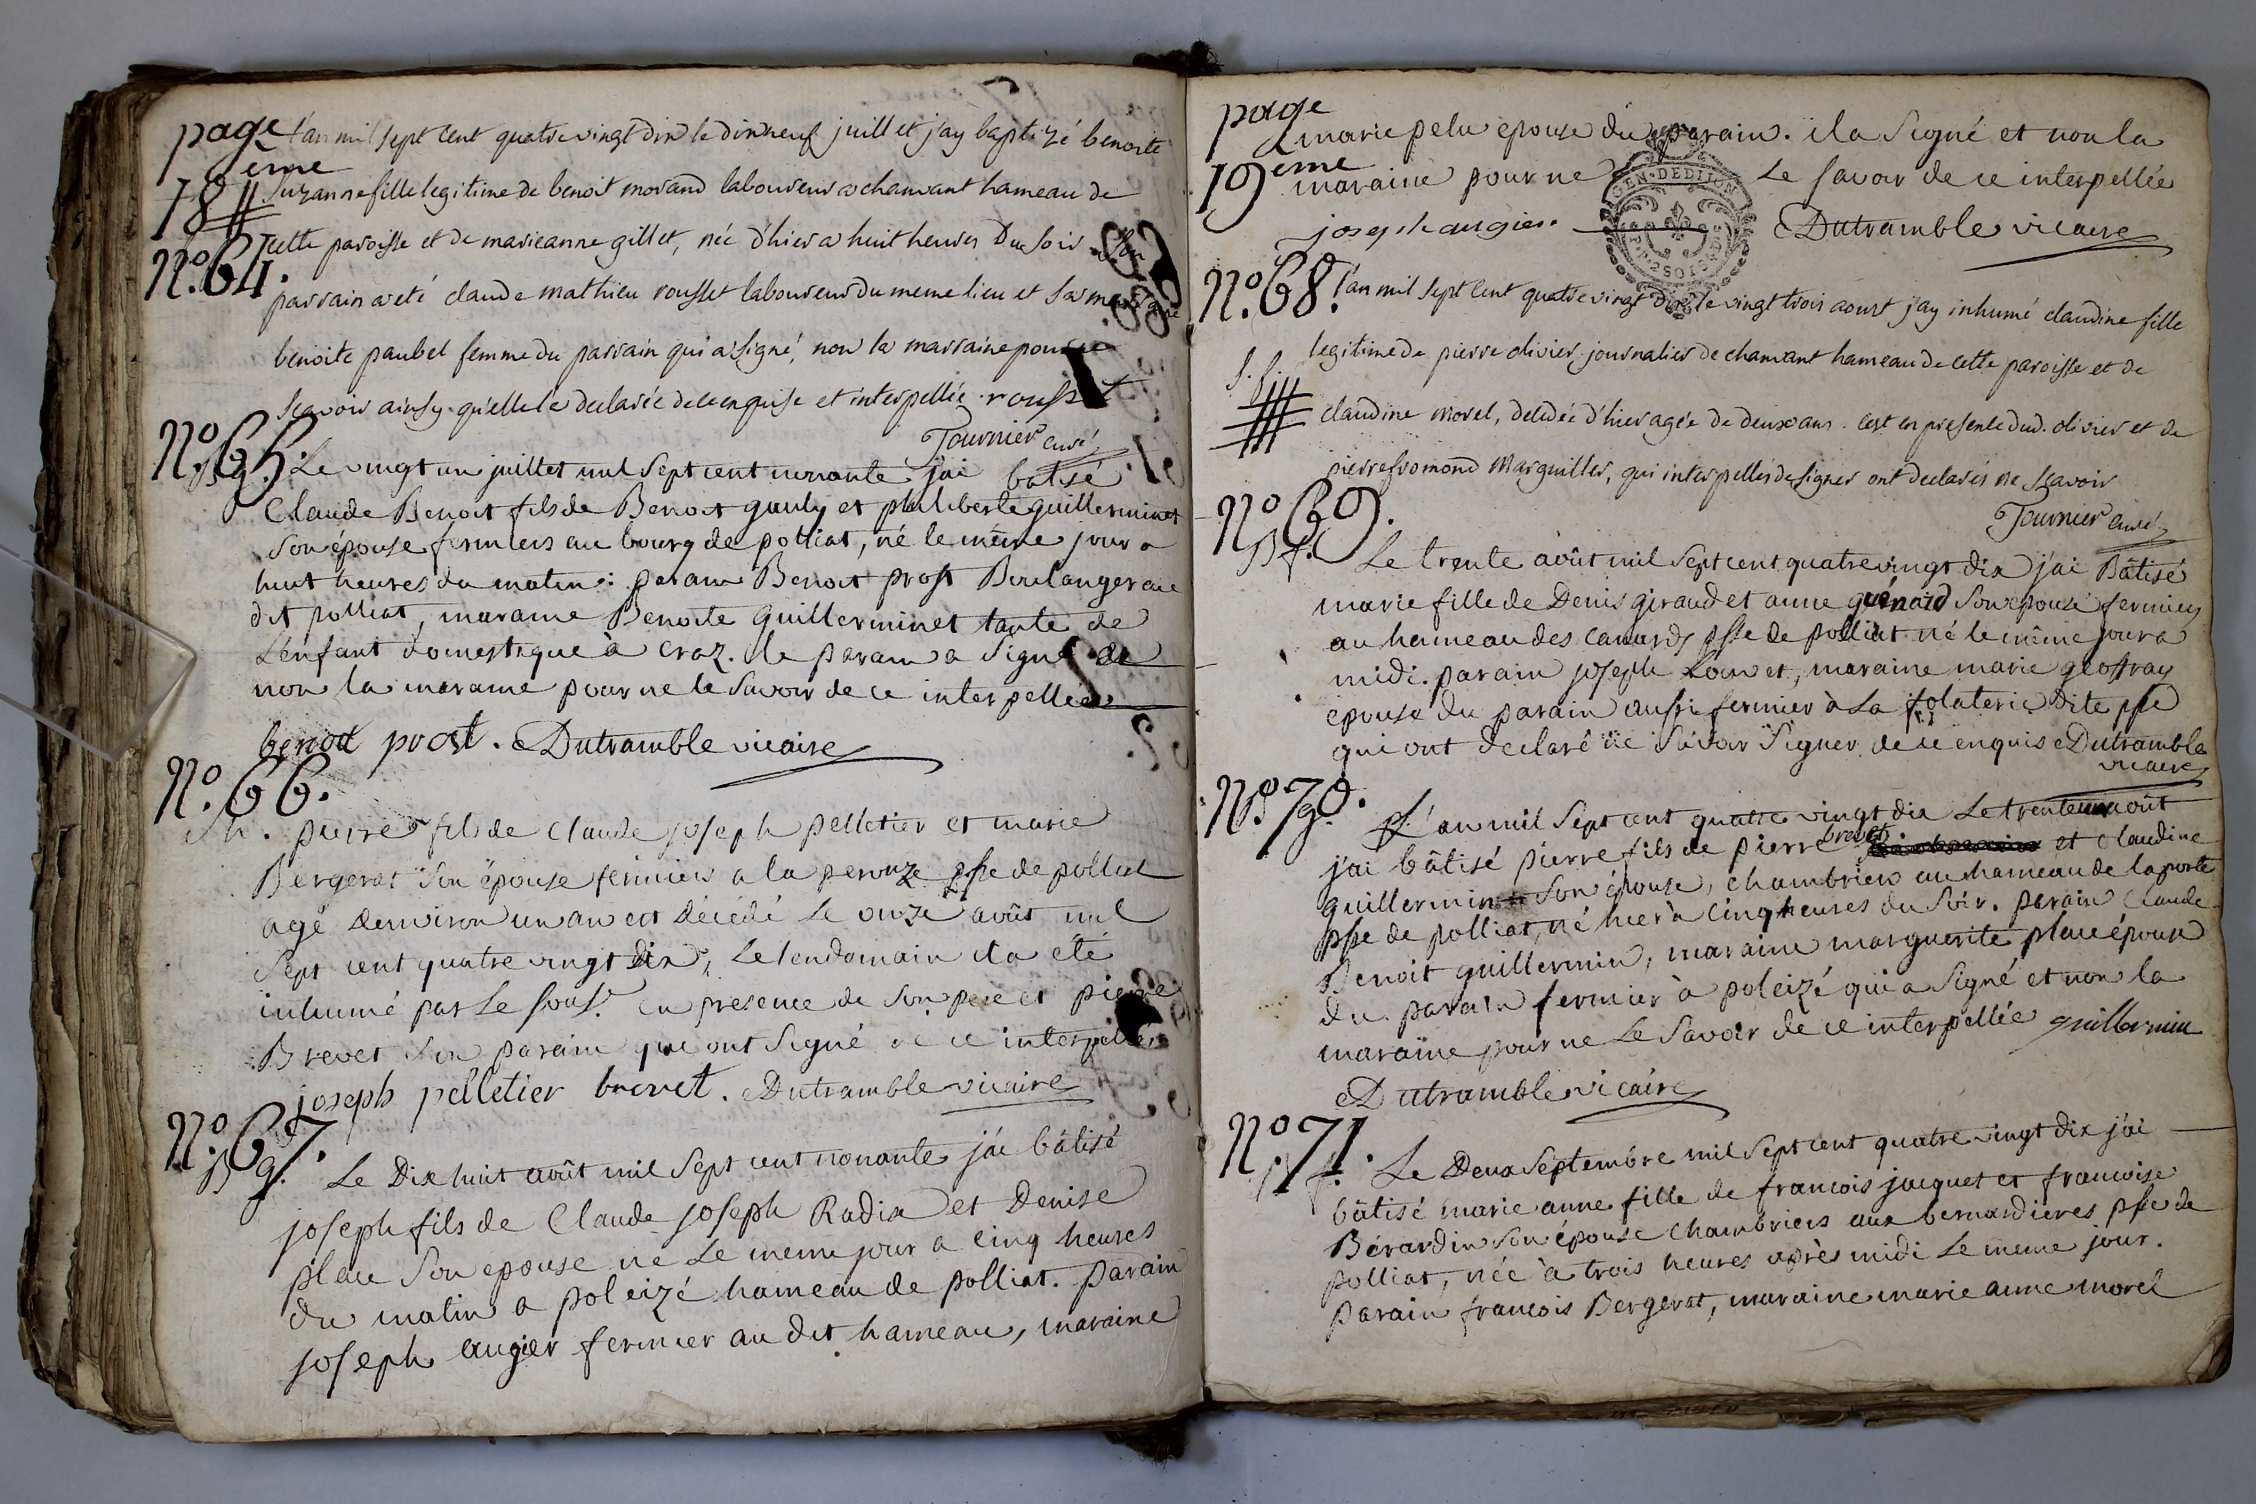 page
18eme
l'an mil sept cent quatre vingt dix le dix neuf juillet j'ay baptizé benoite
Suzanne fille legitime de benoit morand laboureur a chamant hameau de
cette paroisse et de marieanne gillet, née d'hier a huit heures Du soir. Son
N.o 64.
parrain a eté claude mathieu rousset laboureur du meme lieu et sa marraine
benoite paubel femme du parrain qui a signé, non la marraine pour ne
scavoir ainsy qu'elle l'a declarée de ce enquise et interpellée. rousset
Tournier curé
N.o 65.
B g. Le vingt un juillet mil sept cent nonante j'ai batisé
Claude Benoit fils de Benoit gauly et philiberte guillerminet
son épouse fermiers au bourg de polliat, né le même jour a
huit heures du matin: parain Benoit prost Boulanger au
dit polliat, maraine Benoite guillerminet tante de
L'enfant domestique à Craz. le parain a Signé et
non la maraine pour ne le savoir de ce interpellée
benoit prost. Dutramble vicaire
N.o 66.
S h. pierre fils de Claude joseph pelletier et marie
Bergerat son épouse fermiers a la perouze psse de polliat
agé d'environ un an est décédé Le onze août mil
Sept cent quatre vingt dix, Le lendemain il a été
inhumé par Le sous.r en presence de son pere et pierre
Brevet son parain qui ont Signé de ce interpellés
joseph pelletier brevet. Dutramble vicaire
N.o 67.
B g. Le Dix huit août mil Sept cent nonante j'ai bâtisé
joseph fils de Claude joseph Radix et Denise
place Son epouse né Le meme jour a cinq heures
du matin a poleizé hameau de polliat. parain
joseph augier fermier au dit hameau, maraine
page
19eme
marie pelu epouse du parain. il a Signé et non la
maraine pour ne Le savoir de ce interpellée
GEN. DE DIJON
joseph augier. Dutramble vicaire
N.o 68.
l'an mil sept cent quatre vingt dix le vingt trois aoust j'ay inhumé claudine fille
legitime de pierre olivier journalier de chamant hameau de cette paroisse et de
S. f.
claudine morel, decedée d'hier agée de deux ans. c'est en presence dud. olivier et de
pierre fromond Marguiller, qui interpellés de signer ont declarés ne scavoir
Tournier curé
N.o 69.
B f. Le trente août mil Sept cent quatre vingt dix j'ai Bâtisé
marie fille de Denis giraud et anne guénard Son epouse fermiers
au hameau des Canards psse de polliat né le même jour a
midi. parain joseph Louvet, maraine marie geoffray
epouse du parain aussi fermier à La folaterie Dite psse
qui ont declaré ne Savoir Signer de ce enquis Dutramble
vicaire
N.o 70.
B g. L'an mil Sept cent quatre vingt dix Le trente un août
j'ai bâtisé pierre fils de pierre brevet et Claudine
guillermin Son épouse, chambriers au hameau de laporte
psse de polliat, né hier à cinq heures du Soir. parain Claude
Benoit guillermin, maraine marguerite place épouse
du parain fermier à poleizé qui a Signé et non la
maraine pour ne Le Savoir de ce interpellée guillermin
Dutramble vicaire
N.o 71.
B f. Le Deux Septembre mil Sept cent quatre vingt dix j'ai
bâtisé marie anne fille de francois jacquet et francoise
Bérardin Son épouse chambriers aux bernardieres psse de
polliat, née à trois heures après midi Le meme jour.
parain francois Bergerat, maraine marie anne morel